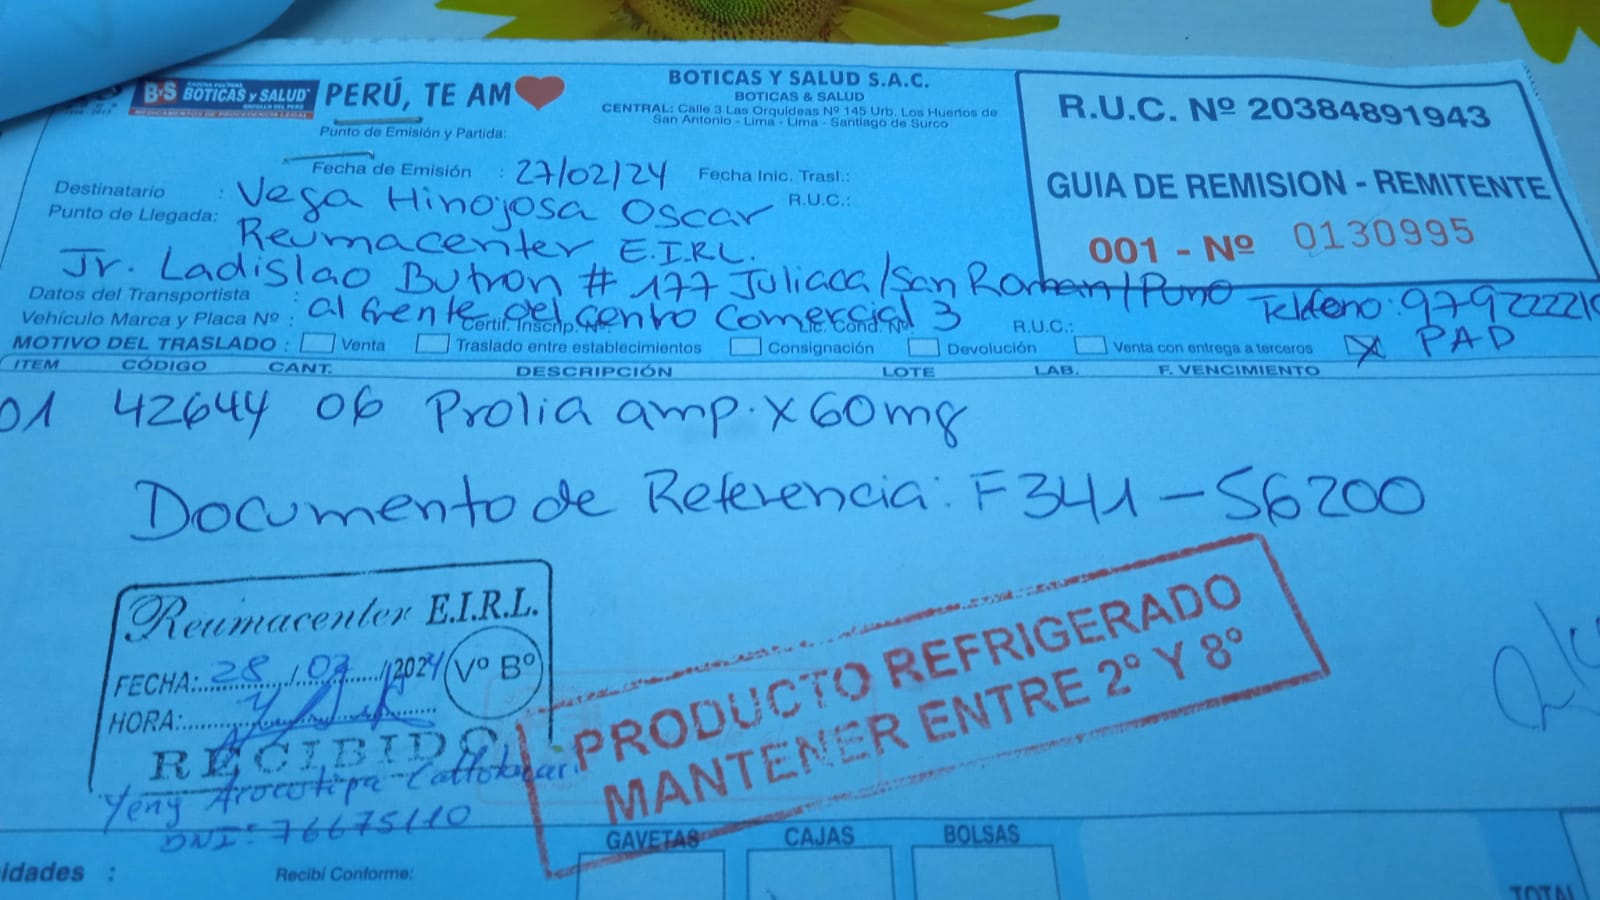 BS BOTICAS y SALUD
MEDICAMENTOS DE PROCEDENCIA LEGAL
PERÚ, TE AM
BOTICAS Y SALUD S.A.C.
BOTICAS & SALUD
CENTRAL: Calle 3 Las Orquídeas Nº 145 Urb. Los Huertos de
San Antonio - Lima - Lima - Santiago de Surco
R.U.C. Nº 20384891943
GUIA DE REMISION - REMITENTE
001 - Nº 0130995
Punto de Emisión y Partida:
Fecha de Emisión : 27/02/24 Fecha Inic. Trasl.:
Destinatario : Vega Hinojosa Oscar R.U.C.:
Punto de Llegada: Reumacenter E.I.R.L.
Jr. Ladislao Butron # 177 Juliaca/San Roman/Puno
Datos del Transportista : Telefeno: 97922221
Vehículo Marca y Placa Nº : al frente del centro Comercial 3
Certif. Inscrip. Nº Lic. Cond. Nº. R.U.C.:
MOTIVO DEL TRASLADO : Venta Traslado entre establecimientos Consignación Devolución Venta con entrega a terceros X PAD
ITEM CÓDIGO CANT. DESCRIPCIÓN LOTE LAB. F. VENCIMIENTO
01 42644 06 Prolia amp. x 60mg
Documento de Referencia: F341-56200
Reumacenter E.I.R.L.
FECHA: 28/02/2024 Vº Bº
HORA:
RECIBIDO
Yeny
DNI: 76675110
PRODUCTO REFRIGERADO
MANTENER ENTRE 2° Y 8°
GAVETAS CAJAS BOLSAS
idades : Recibí Conforme:
TOTAL